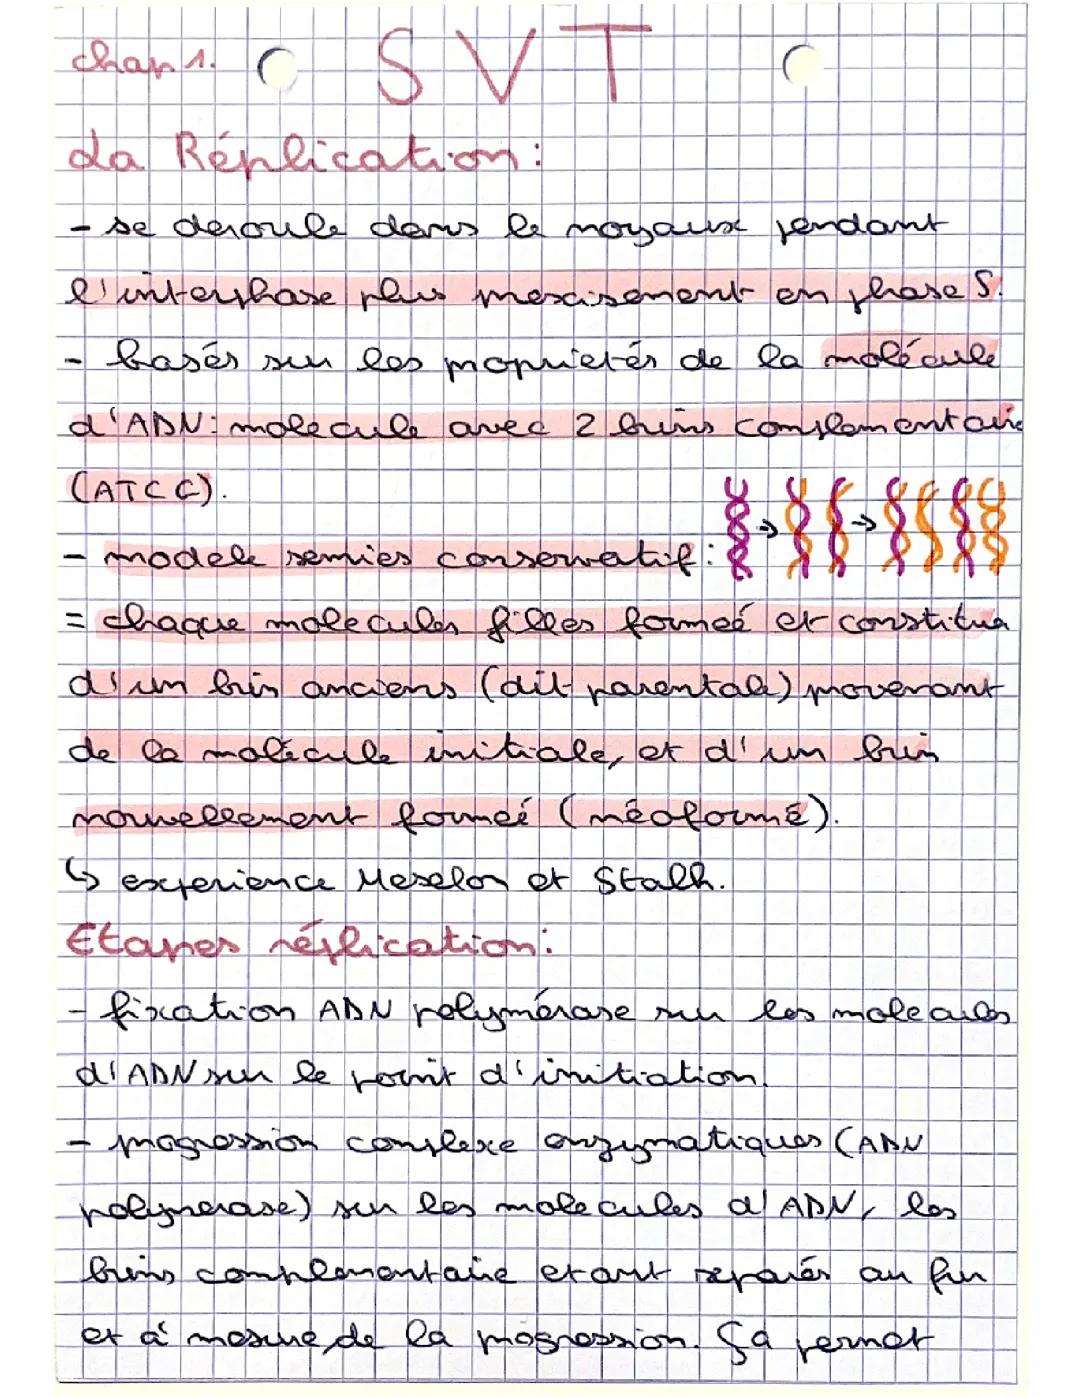 chap 1. SVT
La Réplication:
- se deroule dans le noyaux pendant
l'interphase plus precisement en phase S.
- basés sur les proprietés de la molécule
d'ADN: molecule avec 2 brins complementaire
(ATCG).
- modele semies conservatif:
= chaque molecules filles formeé et constitua
d'un brin anciens (dit parentale) provenant
de la molécule initiale, et d'un brin
nouvellement formeé (néoformé).
↳ experience Meselon et Stalh.
Etapes réplication:
- fixation ADN polymérase sur les molecules
d'ADN sur le point d'initiation.
- progression complexe enzymatiques (ADN
polymerase) sur les molecules d'ADN, les
brins complementaire etant separés au fur
et à mesure de la progression. Ça permet